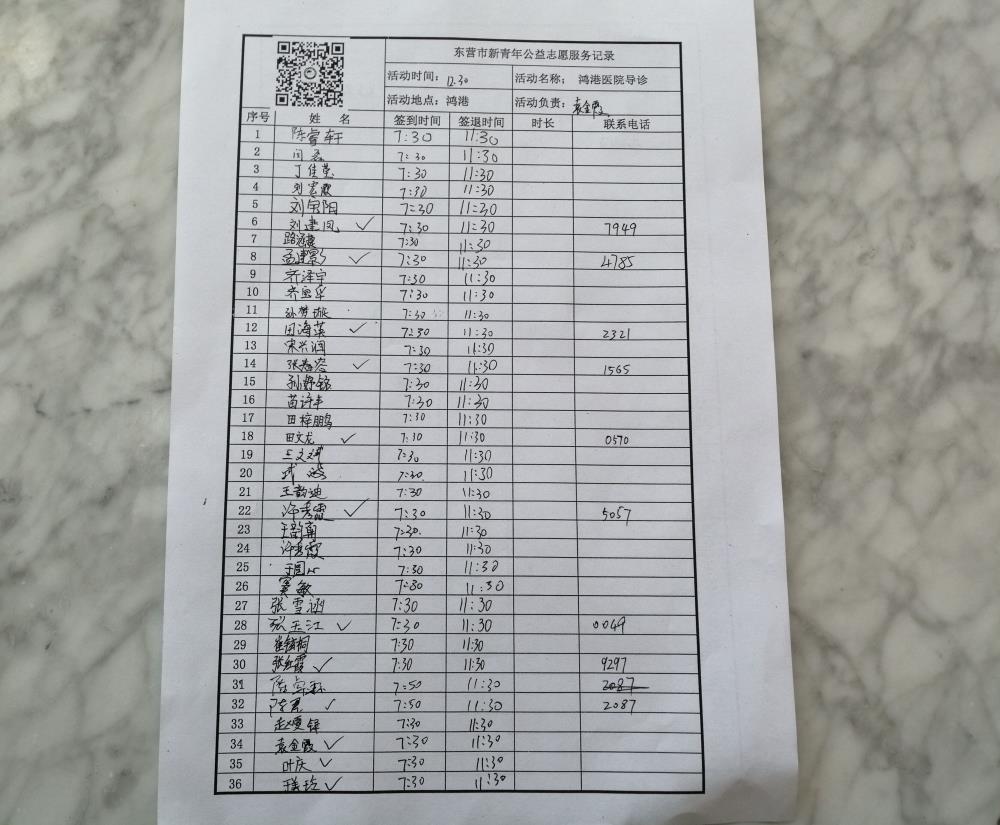 东营市新青年公益志愿服务记录
活动时间: 12.30 活动名称: 鸿港医院导诊
活动地点: 鸿港 活动负责: 袁金霞
序号 姓 名 签到时间 签退时间 时长 联系电话
1 陈睿轩 7:30 11:30
2 闫磊 7:30 11:30
3 丁佳莹 7:30 11:30
4 刘宏霞 7:30 11:30
5 刘宝阳 7:30 11:30
6 刘建凤 ✓ 7:30 11:30 7949
7 7:30 11:30
8 ✓ 7:30 11:30 4785
9 齐泽宇 7:30 11:30
10 齐宝华 7:30 11:30
11 孙梦璇 7:30 11:30
12 田海英 ✓ 7:30 11:30 2321
13 宋兴润 7:30 11:30
14 ✓ 7:30 11:30 1565
15 孙舒铭 7:30 11:30
16 苗诗丰 7:30 11:30
17 田梓鹏 7:30 11:30
18 田文龙 ✓ 7:30 11:30 0570
19 王文斌 7:30 11:30
20 7:30 11:30
21 王韵迪 7:30 11:30
22 许秀霞 ✓ 7:30 11:30 5057
23 王韵萌 7:30 11:30
24 许秀霞 7:30 11:30
25 7:30 11:30
26 窦敏 7:30 11:30
27 张雪涵 7:30 11:30
28 张玉江 ✓ 7:30 11:30 0049
29 7:30 11:30
30 张红霞 ✓ 7:30 11:30 9297
31 7:50 11:30 2087
32 陈君 ✓ 7:50 11:30 2087
33 赵夏铎 7:30 11:30
34 袁金霞 ✓ 7:30 11:30
35 叶庆 ✓ 7:30 11:30
36 ✓ 7:30 11:30